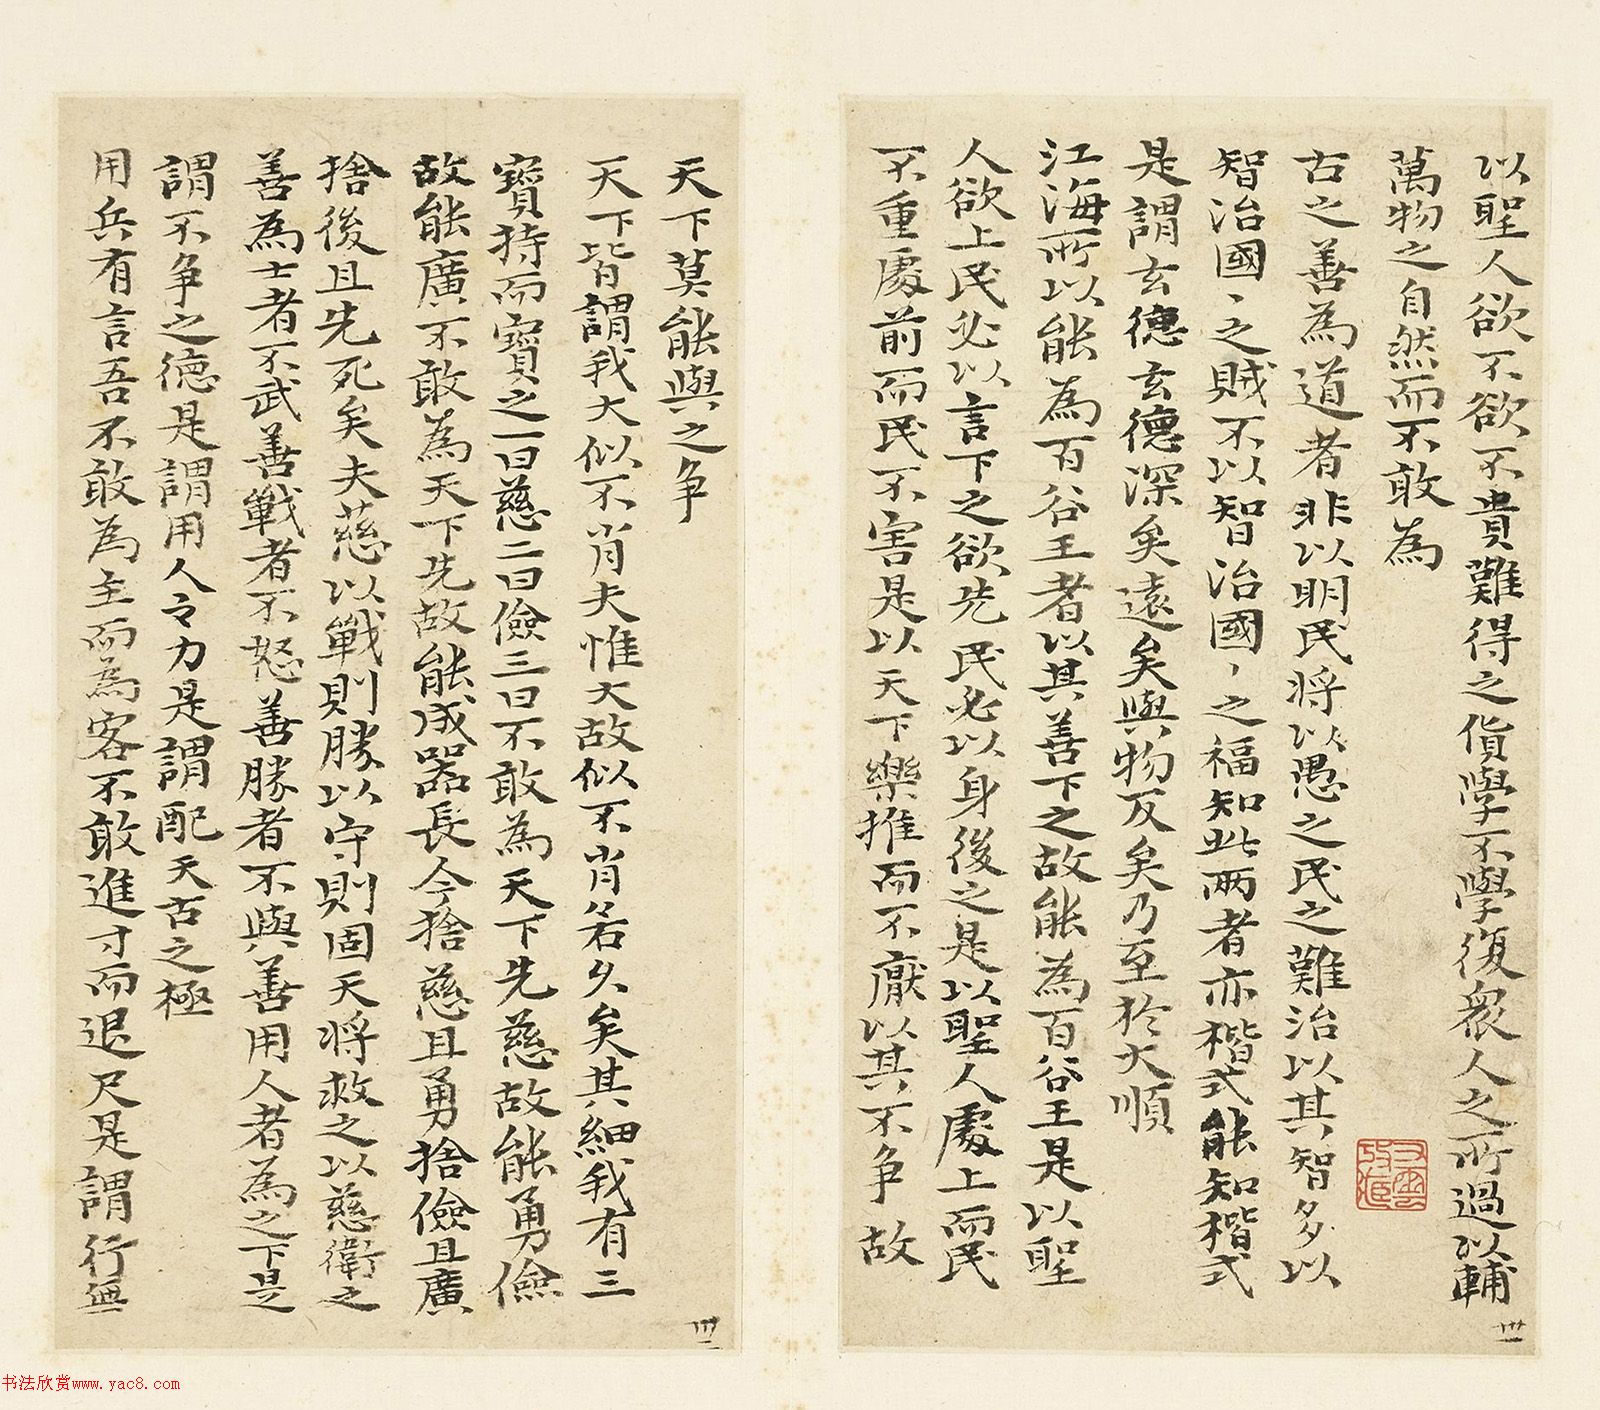 以聖人欲不欲不貴難得之貨學不學復眾人之所過以輔
萬物之自然而不敢為
古之善為道者非以明民將以愚之民之難治以其智多以
智治國〻之賊不以智治國〻之福知此兩者亦楷式能知楷式
是謂玄德玄德深矣遠矣與物反矣乃至於大順
江海所以能為百谷王者以其善下之故能為百谷王是以聖
人欲上民必以言下之欲先民必以身後之是以聖人處上而民
不重處前而民不害是以天下樂推而不厭以其不爭故
卅一
天下莫能與之爭
天下皆謂我大似不肖夫惟大故似不肖若久矣其細我有三
寶持而寶之一曰慈二曰儉三曰不敢為天下先慈故能勇儉
故能廣不敢為天下先故能成器長今捨慈且勇捨儉且廣
捨後且先死矣夫慈以戰則勝以守則固天將救之以慈衛之
善為士者不武善戰者不怒善勝者不與善用人者為之下是
謂不爭之德是謂用人之力是謂配天古之極
用兵有言吾不敢為主而為客不敢進寸而退尺是謂行無
书法欣赏www.yac8.com